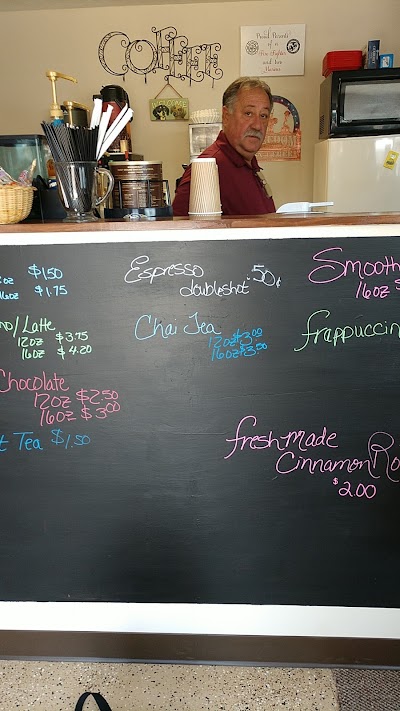 COFFEE
WELCOME
Proud Parents
of a
and two
Marines
oz $1.50
16oz $1.75
no/Latte
12oz $3.75
16oz $4.20
Chocolate
12oz $2.50
16oz $3.00
t Tea $1.50
Espresso
doubleshot .50¢
Chai Tea
12oz $3.00
16oz $3.50
Smooth
16oz $
frappuccin
freshmade
Cinnamon Ro
$2.00